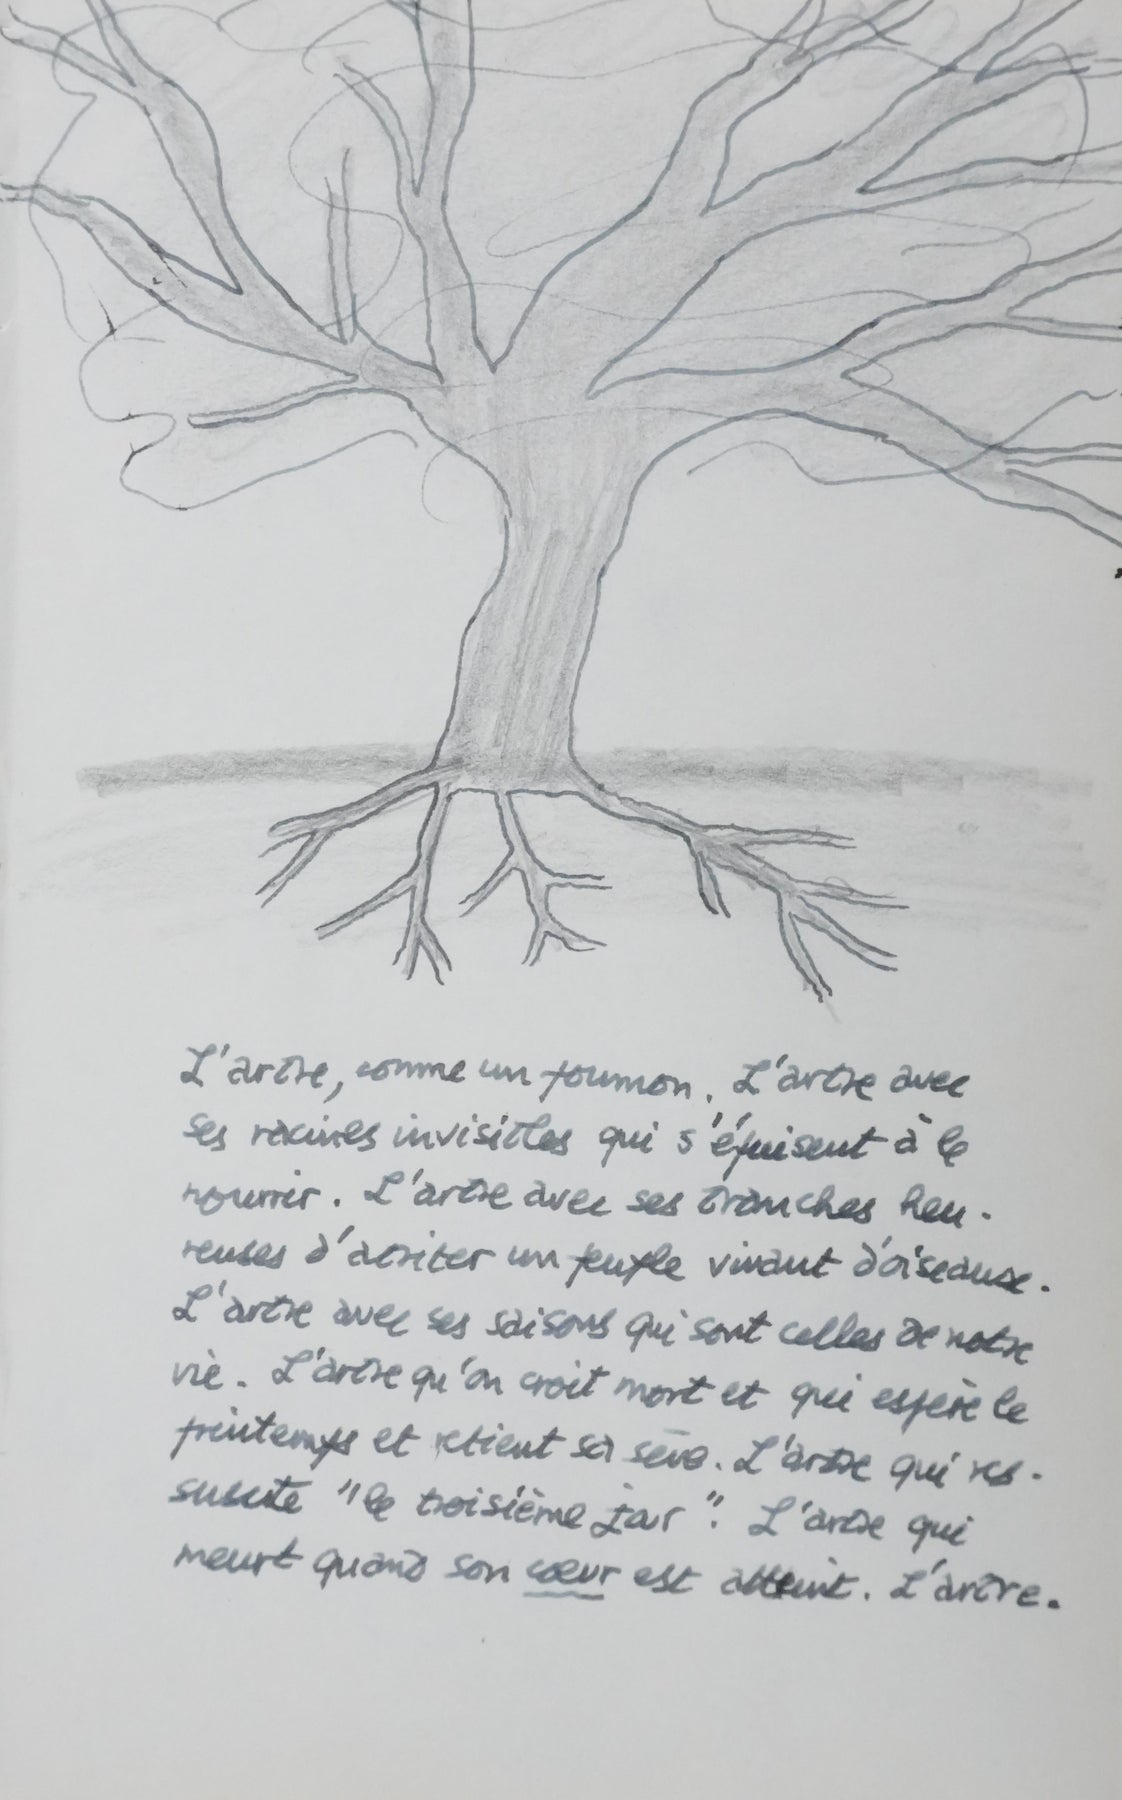 L'arbre, comme un poumon. L'arbre avec
ses racines invisibles qui s'épuisent à le
nourrir. L'arbre avec ses branches heu-
reuses d'abriter un peuple vivant d'oiseaux.
L'arbre avec ses saisons qui sont celles de notre
vie. L'arbre qu'on croit mort et qui espère le
printemps et retient sa sève. L'arbre qui res-
suscite "le troisième jour". L'arbre qui
meurt quand son cœur est atteint. L'arbre.